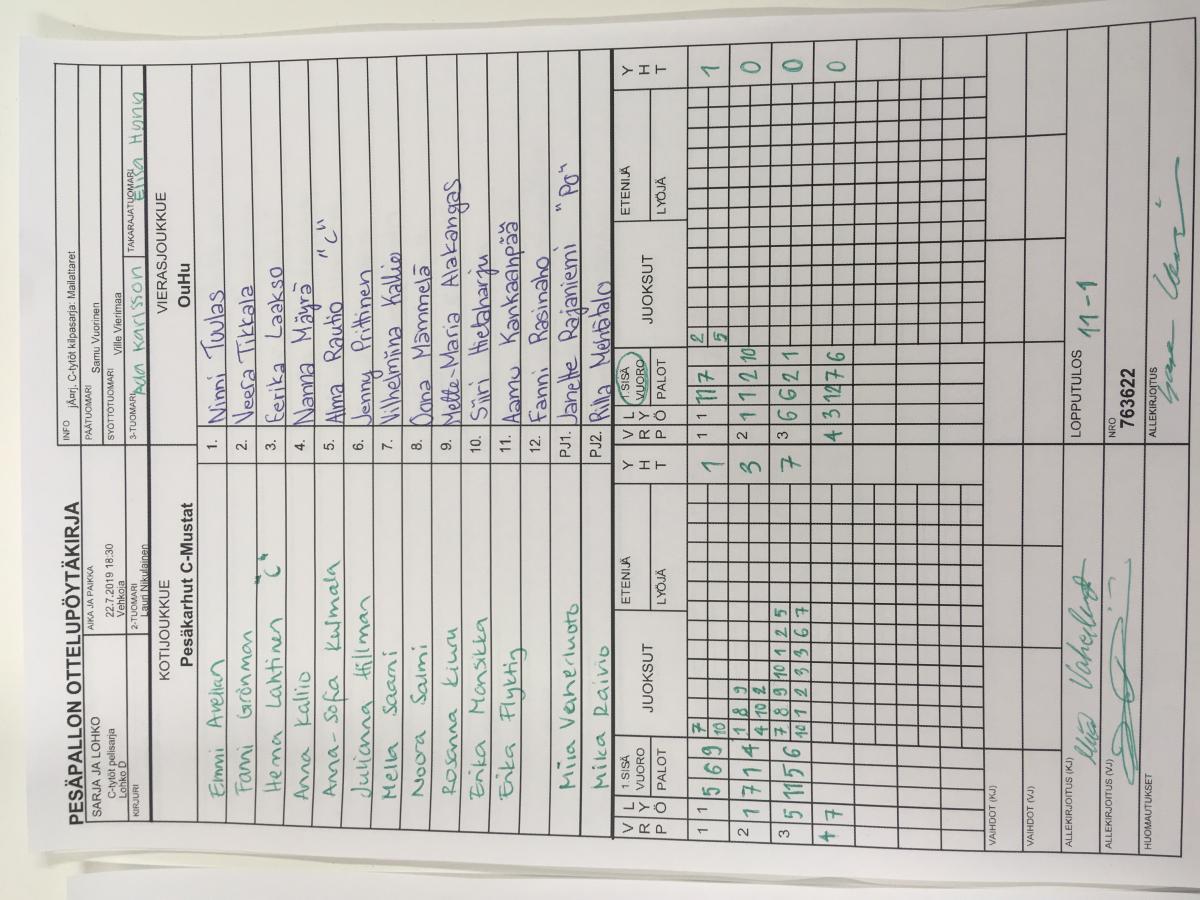 PESÄPALLON OTTELUPÖYTÄKIRJA
SARJA JA LOHKO
C-tytöt pelisarja
Lohko D
AIKA JA PAIKKA
22.7.2019 18:30
Vehkoja
KIRJURI
2-TUOMARI
Lauri Nikulainen
INFO jÄ¤rj. C-tytöt kilpasarja: Mailattaret
PÄÄTUOMARI Samu Vuorinen
SYÖTTÖTUOMARI Ville Vierimaa
3-TUOMARI Ada Karlsson
TAKARAJATUOMARI Elisa Hynn
KOTIJOUKKUE
Pesäkarhut C-Mustat
VIERASJOUKKUE
OuHu
Emmi Avelian 1. Ninni Tuulas
Fanni Grönman 2. Veera Tikkala
Henna Lahtinen "C" 3. Eerika Laakso
Anna Kallio 4. Nanna Mäyrä
Anna-Sofia Kulmala 5. Alma Rautio "C"
Julianna Hillman 6. Jenny Prittinen
Mella Saarni 7. Vilhelmiina Kallio
Noora Salmi 8. Oona Mämmelä
Rosanna Kiuru 9. Mette-Maria Alakangas
Erika Mansikka 10. Siiri Hietaharju
Erika Flyktig 11. Aamu Kankaanpää
12. Fanni Rasinaho
Miia Vanerluoto PJ1. Janette Rajaniemi "PO"
Mika Raivio PJ2. Riila Mehtätalo
VRP LYÖ 1.SISÄ VUORO PALOT JUOKSUT ETENIJÄ LYÖJÄ YHT VRP LYÖ 1.SISÄ VUORO PALOT JUOKSUT ETENIJÄ LYÖJÄ YHT
1 1 5 6 9 7 1 1 1 11 7 2 1
10 5
2 1 7 1 4 1 8 9 3 2 1 1 2 10 0
4 10 2
3 5 11 5 6 7 8 9 10 1 2 5 7 3 6 6 2 1 0
10 1 2 3 3 6 7
4 7 4 3 12 7 6 0
VAIHDOT (KJ)
VAIHDOT (VJ)
ALLEKIRJOITUS (KJ)
LOPPUTULOS 11-1
ALLEKIRJOITUS (VJ)
NRO
763622
HUOMAUTUKSET
ALLEKIRJOITUS